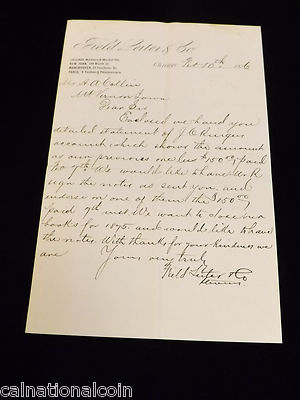 Field, Leiter & Co
CHICAGO, Madison & Market Sts.
NEW YORK,
MANCHESTER,
PARIS,
Chicago Feb 10th 1876
Mr. A. A. Collin
Mt Vernon Iowa
Dear Sir
Enclosed we hand you
detailed statement of J. C. Runges
account which shows the amount
as our previous one less $150 00/ paid
7th. We would like to have
sign the notes as sent you, and
endorse on one of them the $150 00
paid 7th inst. We want to close our
books for 1875. and would like to have
the notes. With thanks for your kindness we
are Yours very truly
Field Leiter & Co
calnationalcoin calnationalcoin